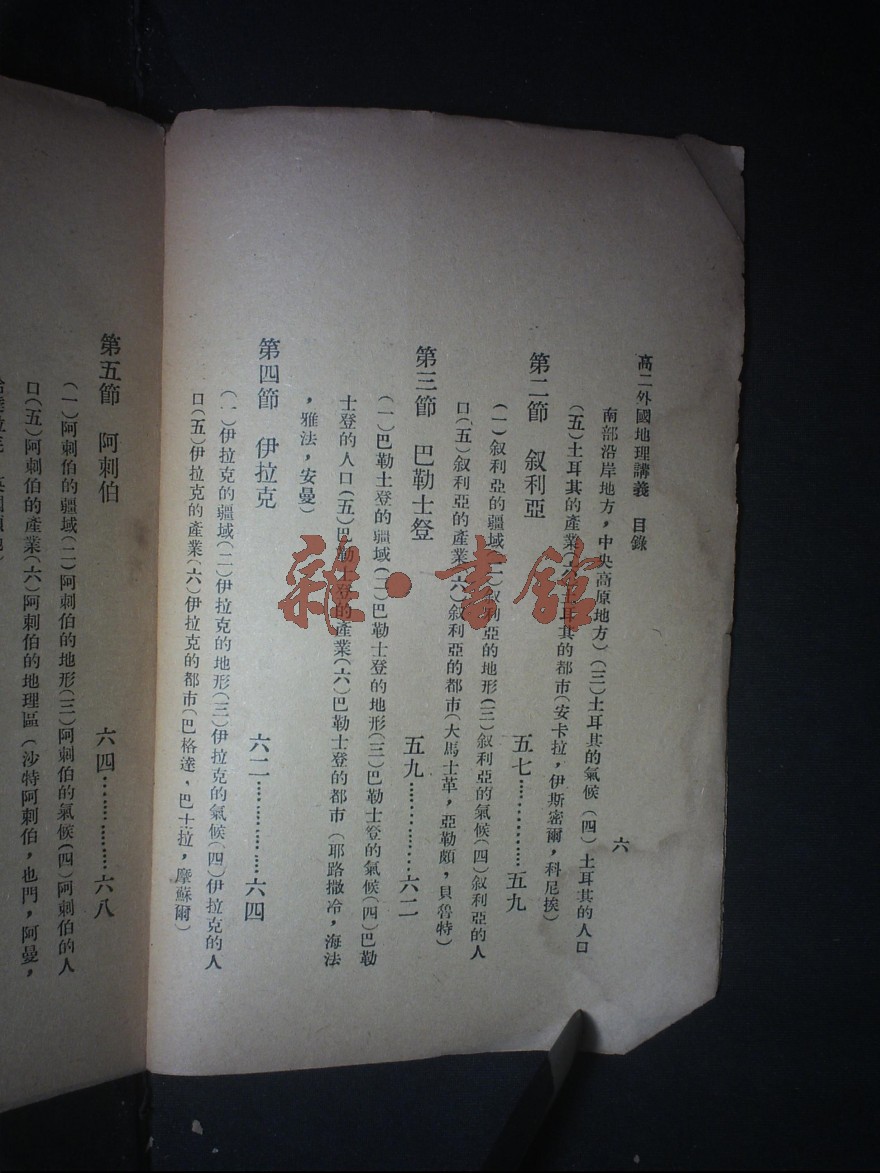 高二外國地理講義　目錄
六
南部沿岸地方，中央高原地方）（三）土耳其的氣候（四）土耳其的人口
（五）土耳其的產業（六）土耳其的都市（安卡拉，伊斯密爾，科尼挨）
第二節　叙利亞
五七……………五九
（一）叙利亞的疆域（二）叙利亞的地形（三）叙利亞的氣候（四）叙利亞的人
口（五）叙利亞的產業（六）叙利亞的都市（大馬士革，亞勒頗，貝魯特）
第三節　巴勒士登
五九……………六二
（一）巴勒士登的疆域（二）巴勒士登的地形（三）巴勒士登的氣候（四）巴勒
士登的人口（五）巴勒士登的產業（六）巴勒士登的都市（耶路撒冷，海法
，雅法，安曼）
第四節　伊拉克
六二……………六四
（一）伊拉克的疆域（二）伊拉克的地形（三）伊拉克的氣候（四）伊拉克的人
口（五）伊拉克的產業（六）伊拉克的都市（巴格達，巴士拉，摩蘇爾）
第五節　阿剌伯
六四……………六八
（一）阿剌伯的疆域（二）阿剌伯的地形（三）阿剌伯的氣候（四）阿剌伯的人
口（五）阿剌伯的產業（六）阿剌伯的地理區（沙特阿剌伯，也門，阿曼，
雜·書館